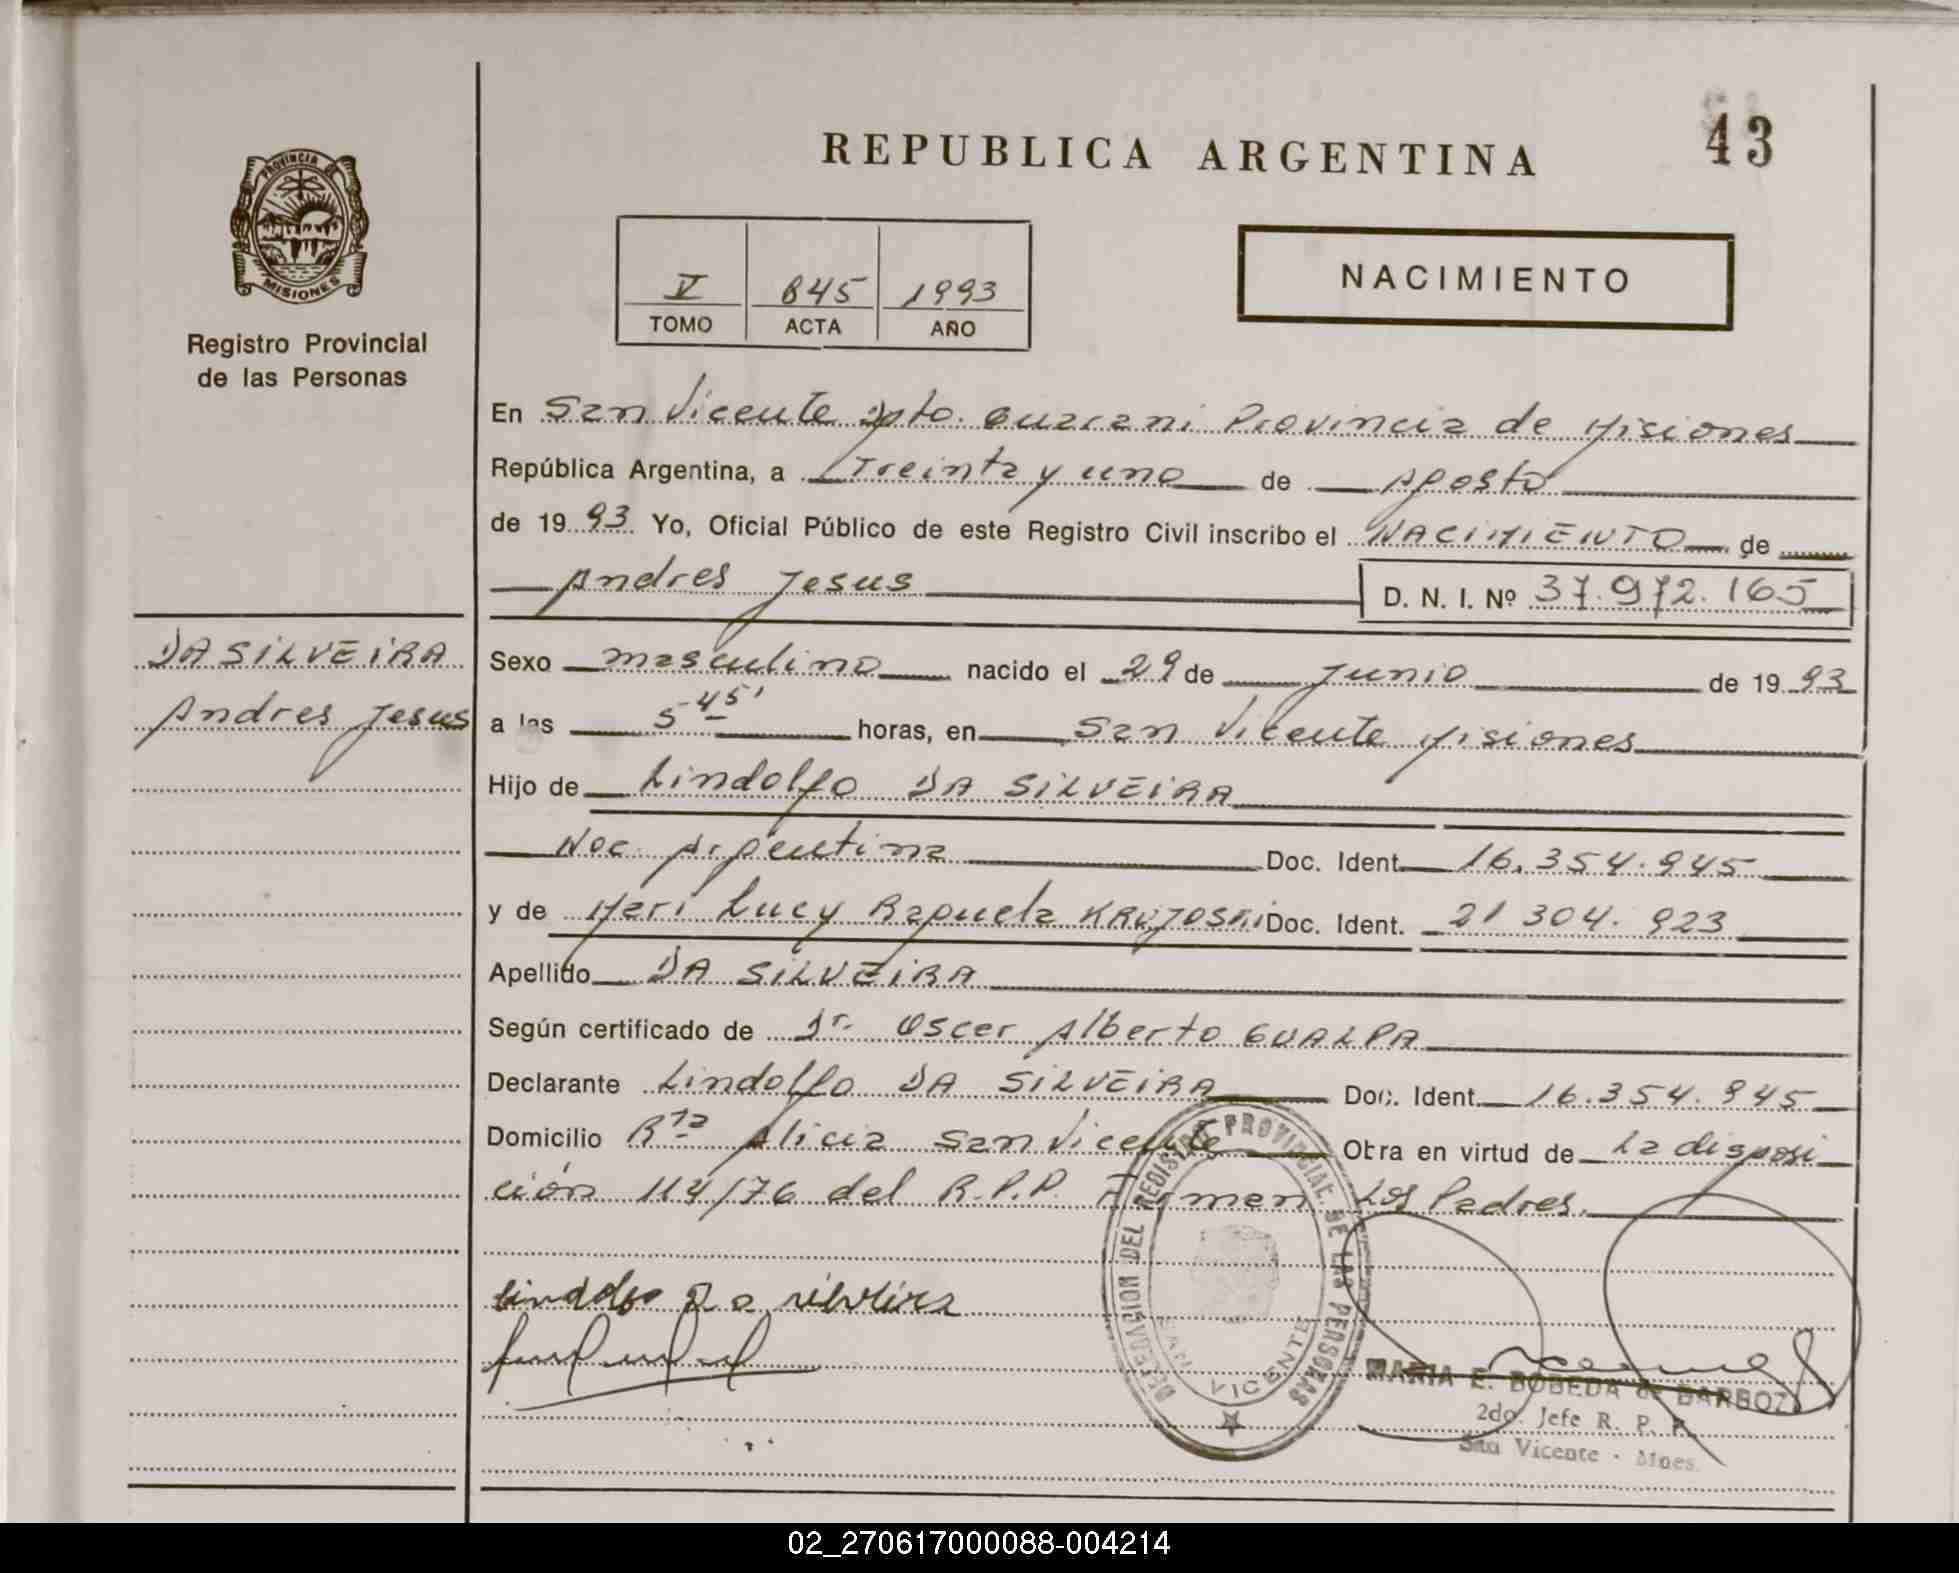 43
REPUBLICA ARGENTINA
PROVINCIA DE
MISIONES
Registro Provincial
de las Personas
V 845 1993
TOMO ACTA AÑO
NACIMIENTO
En San Vicente Dpto. Guarani Provincia de Misiones
República Argentina, a Treinta y uno de Agosto
de 1993 Yo, Oficial Público de este Registro Civil inscribo el NACIMIENTO de
Andres Jesus D. N. I. Nº 37.972.165
DA SILVEIRA
Andres Jesus
Sexo masculino nacido el 29 de Junio de 1993
a las 5-45' horas, en San Vicente Misiones
Hijo de Lindolfo DA SILVEIRA
Nac. Argentina Doc. Ident. 16.354.945
y de Meri Lucy Raquela Doc. Ident. 21 304. 923
Apellido DA SILVEIRA
Según certificado de Dr. Oscar Alberto GUALPA
Declarante Lindolfo DA SILVEIRA Doc. Ident. 16.354.945
Domicilio Rta Alicia San Vicente Obra en virtud de La disposi
ción 114/76 del R.P.P. Firman Los Padres.
Lindolfo Da silveira
DELEGACION DEL REGISTRO PROVINCIAL DE LAS PERSONAS
SAN VICENTE
MARIA E. BOBEDA de BARBOZA
2do. Jefe R. P. P.
San Vicente - Mnes.
02_270617000088-004214